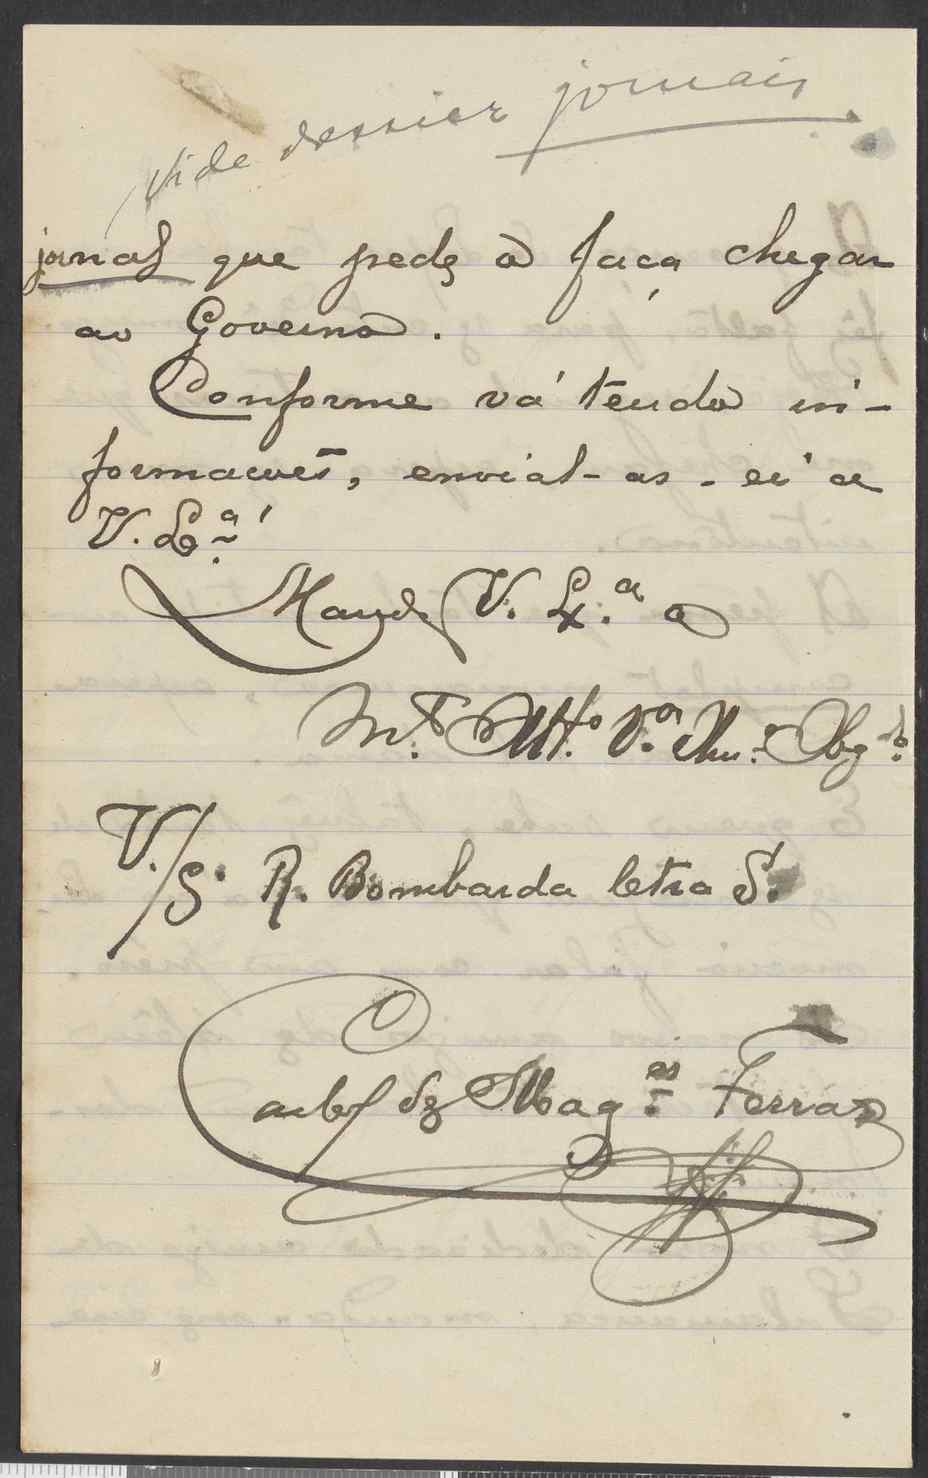 vide dossier jornais
jornal que pede o faça chegar
ao Governo.
Conforme vá tendo in-
formações, envial-as-ei a
V. Ex.ª
Mande V. Ex.ª o
M.to Att.o V.or Obg.do
V./S. R. Bombarda letra S.
Carlos de Mag.es Ferraz